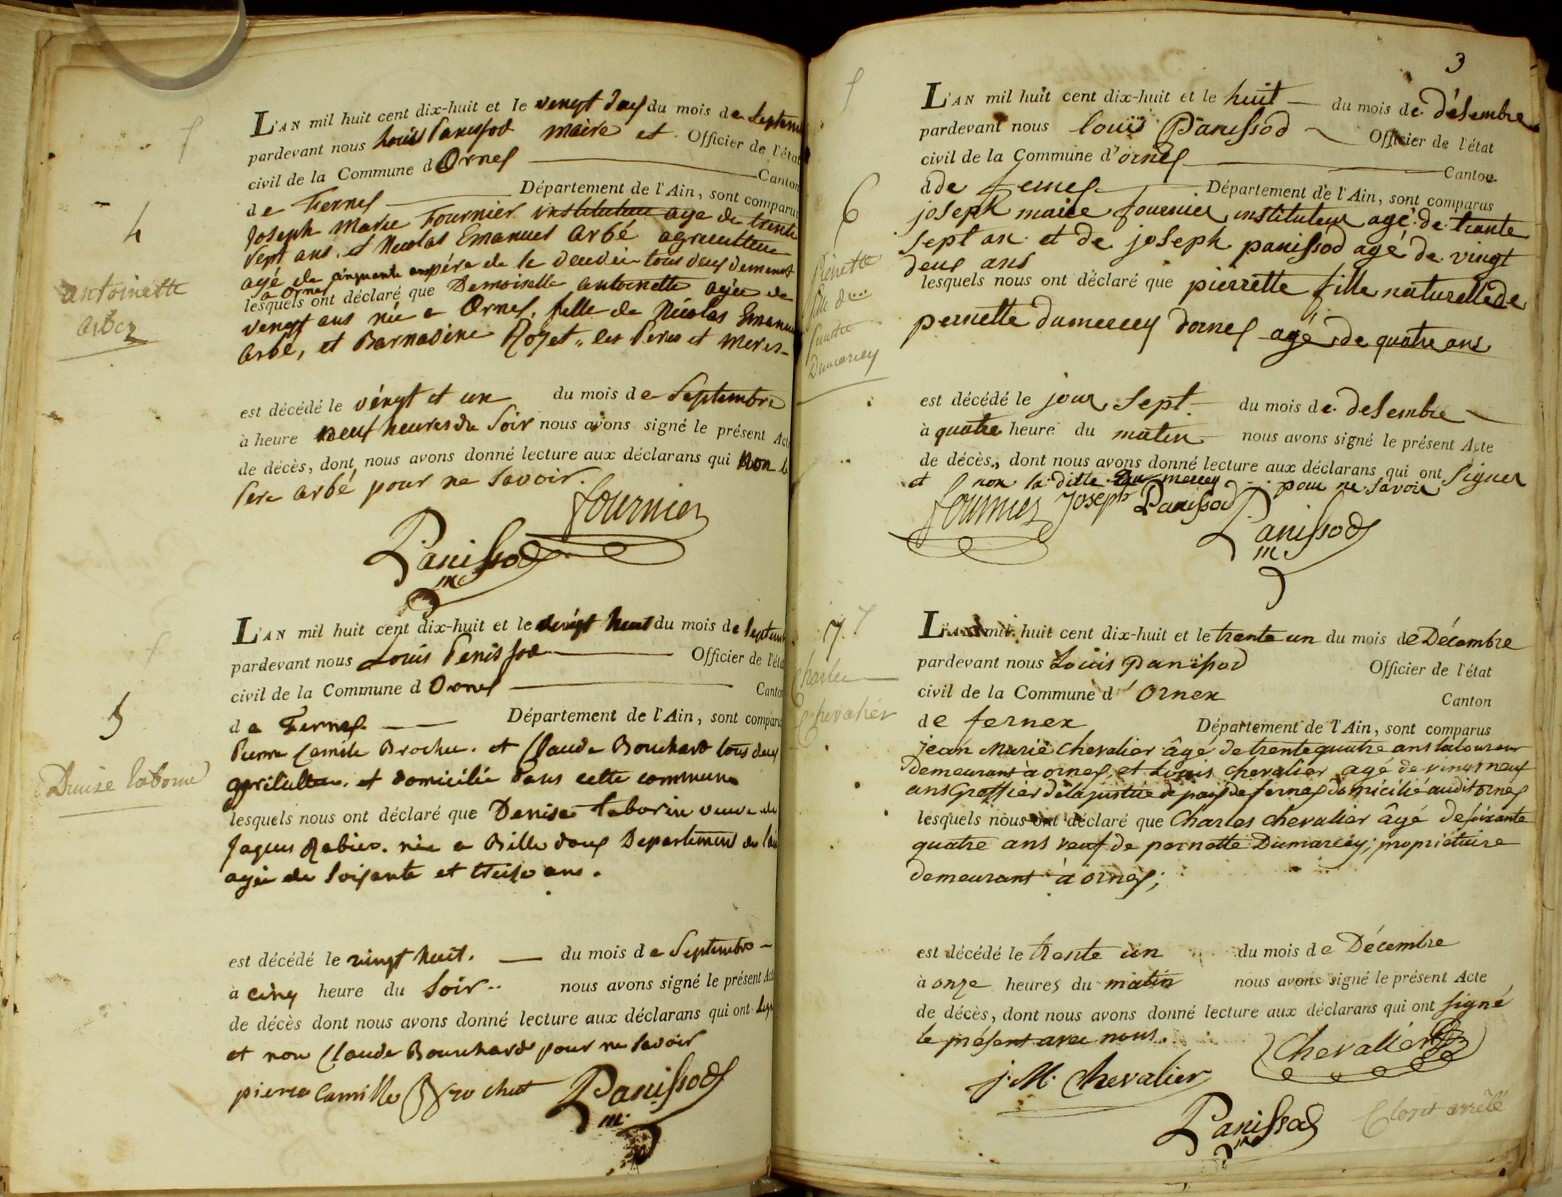 4
antoinette
arbez
L'AN mil huit cent dix-huit et le vengt deus du mois de Septem
pardevant nous Louis Panissod maire et Officier de l'état
civil de la Commune d Ornes Canton
de Fernes Département de l'Ain, sont comparus
Joseph Marie Fournier instituteur age de trente
sept ans, et Nicolas Emanuel Arbé agriculteur
agé de cinquante ans père de la tous deus demeurant
a Ornes
lesquels ont déclaré que Demoiselle antoinette agée de
vengt ans née a Ornes, fille de Nicolas Emanuel
Arbé, et Barnadine Rozet, les Peres et Meres
est décédé le vengt et un du mois de Septembre
à heure neuf heures du Soir nous avons signé le présent Acte
de décès, dont nous avons donné lecture aux déclarans qui Non le
Pere Arbé pour ne Savoir.
fournier
Panissod
m
5
Denise laborin
L'AN mil huit cent dix-huit et le vingt huit du mois de Septem
pardevant nous Louis Penissod Officier de l'état
civil de la Commune d Ornes Canton
de Fernes Département de l'Ain, sont comparus
Pierre Camile Brochu. et Claude Bouchard tous deus
agriculteur. et domicilié dans cette commune
lesquels nous ont déclaré que Denise Laborin veuve de
Jaques Rabier. née a Departement de
agée de Soisante et treize ans.
est décédé le vingt huit. du mois de Septembre
à cinq heure du Soir nous avons signé le présent Acte
de décès dont nous avons donné lecture aux déclarans qui ont
et non Claude Bouchard pour ne Savoir
pierre Camille Brochut Panissod
m
3
6
Pierette
fille de
Dumarcey
L'AN mil huit cent dix-huit et le huit du mois de désembre
pardevant nous louis Panissod Officier de l'état
civil de la Commune d'ornes Canton
de fernes Département de l'Ain, sont comparus
joseph marie fournier instituteur agé de trante
sept an et de joseph panissod agé de vingt
deus ans
lesquels nous ont déclaré que pierrette fille naturelle de
pernette dumercey dornes agé de quatre ans
est décédé le jour sept du mois de desembre
à quatre heure du matin nous avons signé le présent Acte
de décès, dont nous avons donné lecture aux déclarans qui ont Signer
et non la ditte dumercey pour ne Savoir
fournier Joseph Panissod Panissod
m
7. 7
Charles
Chevalier
L'AN mil huit cent dix-huit et le trente un du mois de Décembre
pardevant nous Louis Panissod Officier de l'état
civil de la Commune d'ornex Canton
de fernex Département de l'Ain, sont comparus
jean Marie Chevalier âgé de trente quatre ans laboureur
Demeurant à ornes, et Louis Chevalier agé de vingt neuf
ans Greffier de la justice de paix de fernes domicilié audit ornes
lesquels nous ont déclaré que Charles Chevalier âgé de Soixante
quatre ans veuf de pernette Dumarcey, propriétaire
demeurant à ornes;
est décédé le trente un du mois de Décembre
à onze heures du matin nous avons signé le présent Acte
de décès, dont nous avons donné lecture aux déclarans qui ont signé
le présent avec nous.
J. M. Chevalier Chevalier
Panissod
m
Clos et arrêté